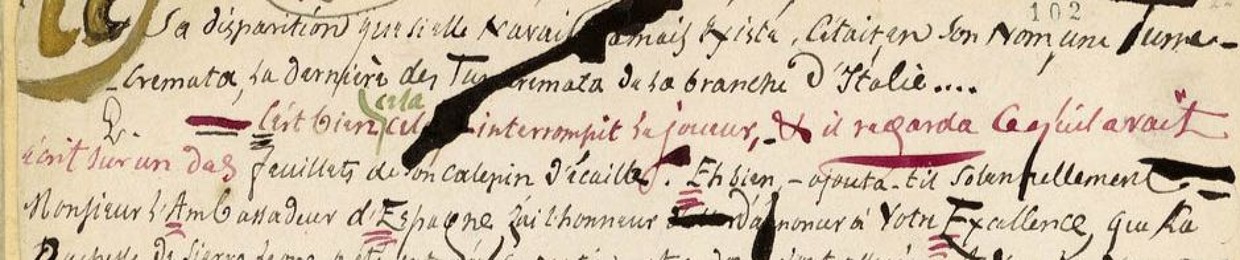 102
Sa disparition que si elle n'avait jamais existé, C'était en Son Nom une Turre-
-cremata, La dernière des Turrecremata de La branche d'Italie....
— C'est bien cela – interrompit le joueur, – & il regarda Ce qu'il avait
écrit sur un des feuillets de son calepin d'écaille. Eh bien, – ajouta-t-il Solennellement
Monsieur l'Ambassadeur d'Espagne, j'ai l'honneur d'annoncer à Votre Excellence, que La
Duchesse de Sierra-Leone